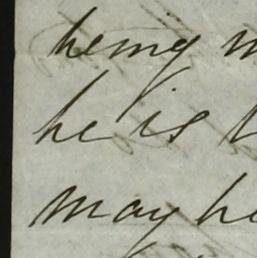 being
he is
may he